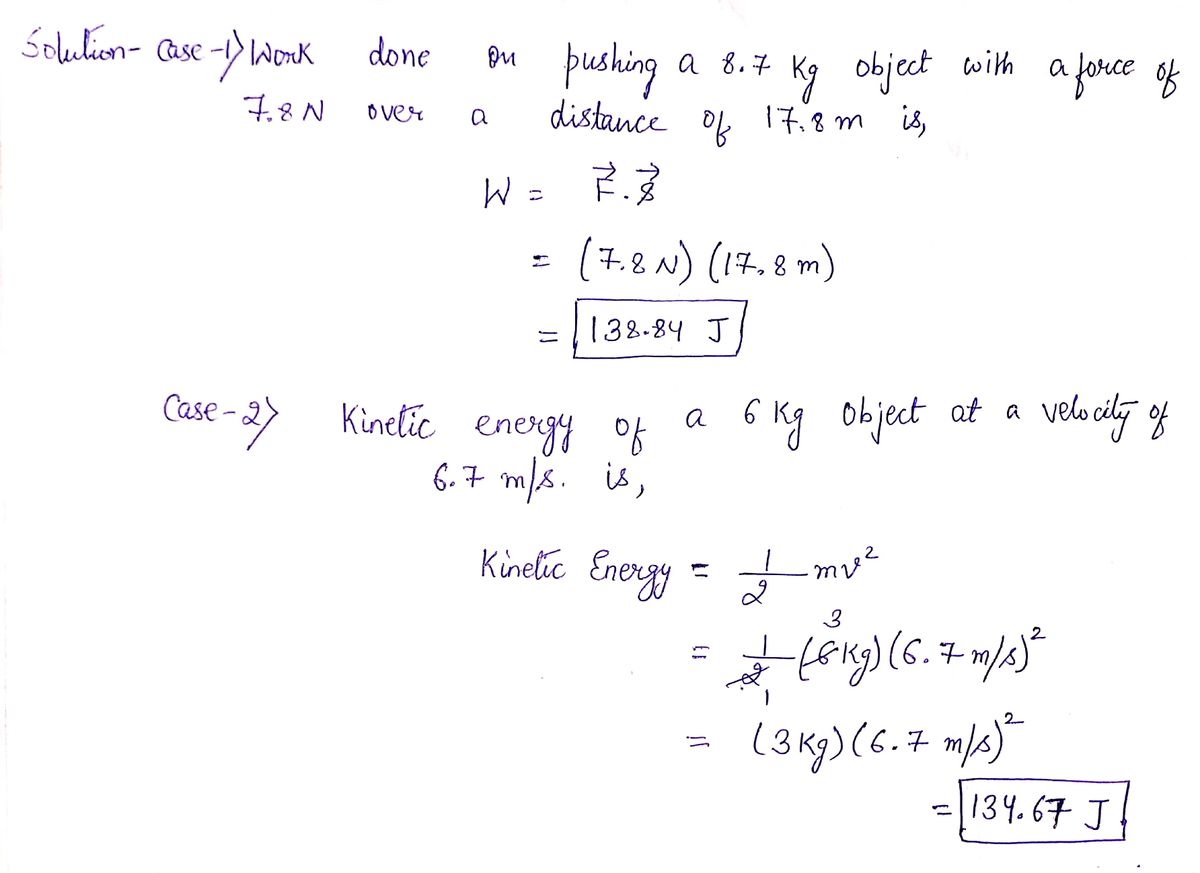 Solution- Case-1> Work done on pushing a 8.7 Kg object with a force of
7.8 N over a distance of 17.8 m is,
W = F⃗.s⃗
= (7.8 N) (17.8 m)
= 138.84 J
Case-2> Kinetic energy of a 6 Kg object at a velocity of
6.7 m/s. is,
Kinetic Energy = 1/2 mv²
= 1/2 (6 Kg) (6.7 m/s)²
3
1
= (3 Kg) (6.7 m/s)²
= 134.67 J